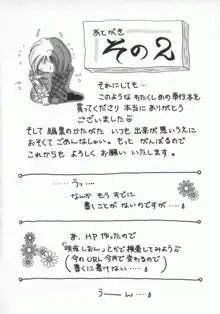 あとがき
その2
それにしても…
このような わたくしめの単行本を
買ってくださり 本当に ありがとう
ございました
そして 編集のかたがた いつも 出来が悪いうえに
おそくて ごめんなしゃい。もっと がんばるので
これからも よろしく お願い いたします。
……うっ…。
なんか もう すでに
書くことが ないのですが…
あ、HP 作ったので
しおん」とかで検索してみよう
(今の URL 今月で変わるので
書くに書けない…。)
うーん…。